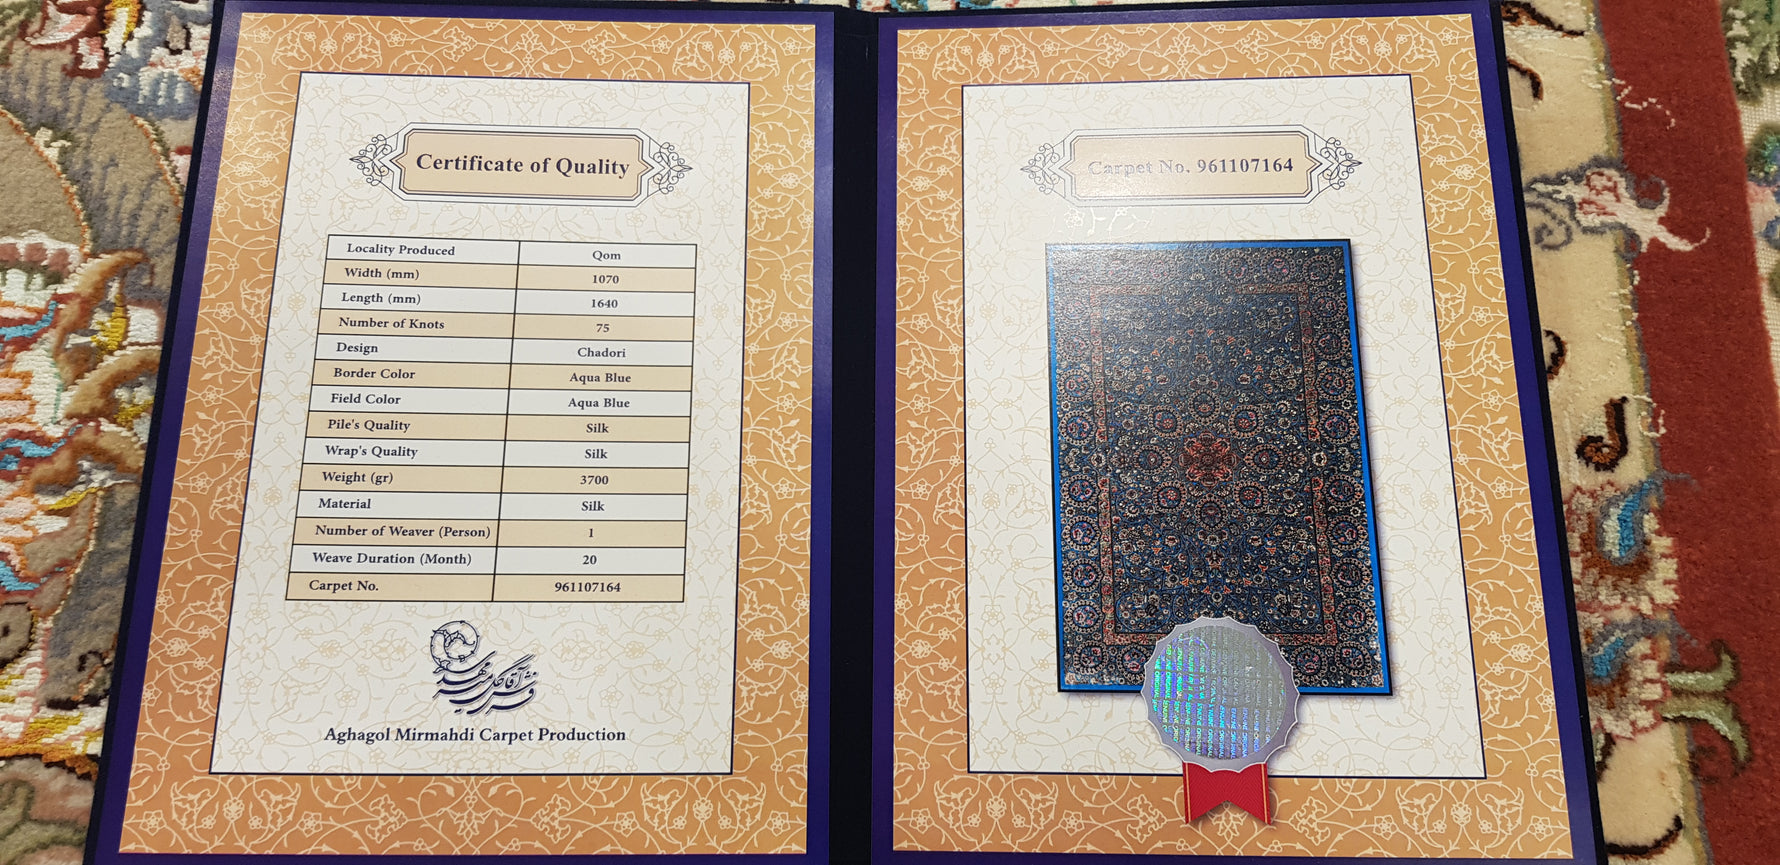 Certificate of Quality
Locality Produced Qom
Width (mm) 1070
Length (mm) 1640
Number of Knots 75
Design Chadori
Border Color Aqua Blue
Field Color Aqua Blue
Pile's Quality Silk
Wrap's Quality Silk
Weight (gr) 3700
Material Silk
Number of Weaver (Person) 1
Weave Duration (Month) 20
Carpet No. 961107164
فرش آقاگل میرمهدی
Aghagol Mirmahdi Carpet Production
Carpet No. 961107164